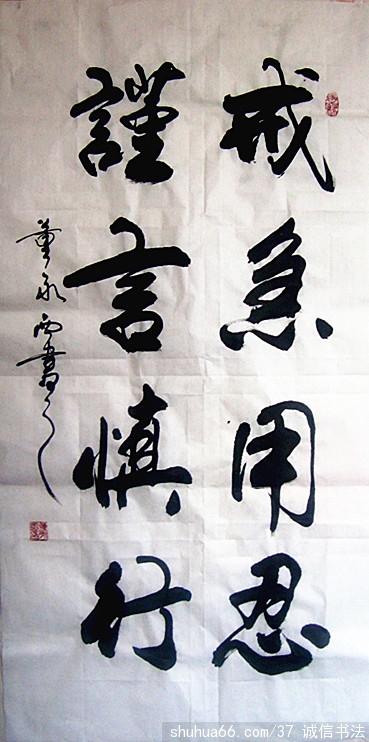 戒急用忍
謹言慎行
董永西書
shuhua66.com/37 诚信书法